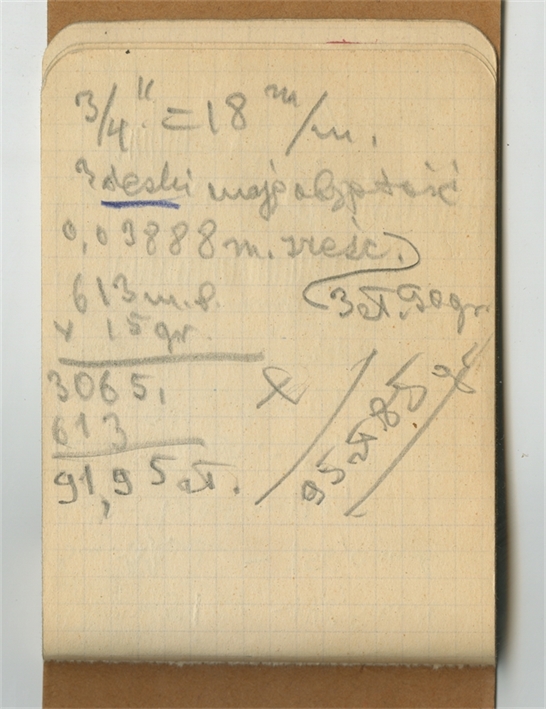 3/4" = 18 m/m.
3 deski maję objętość
0,03888 m. sześc.
3 zł. 90 gr.
613 m.b.
x 15 gr.
3065
613
91,95 zł.
95 zł 85 gr